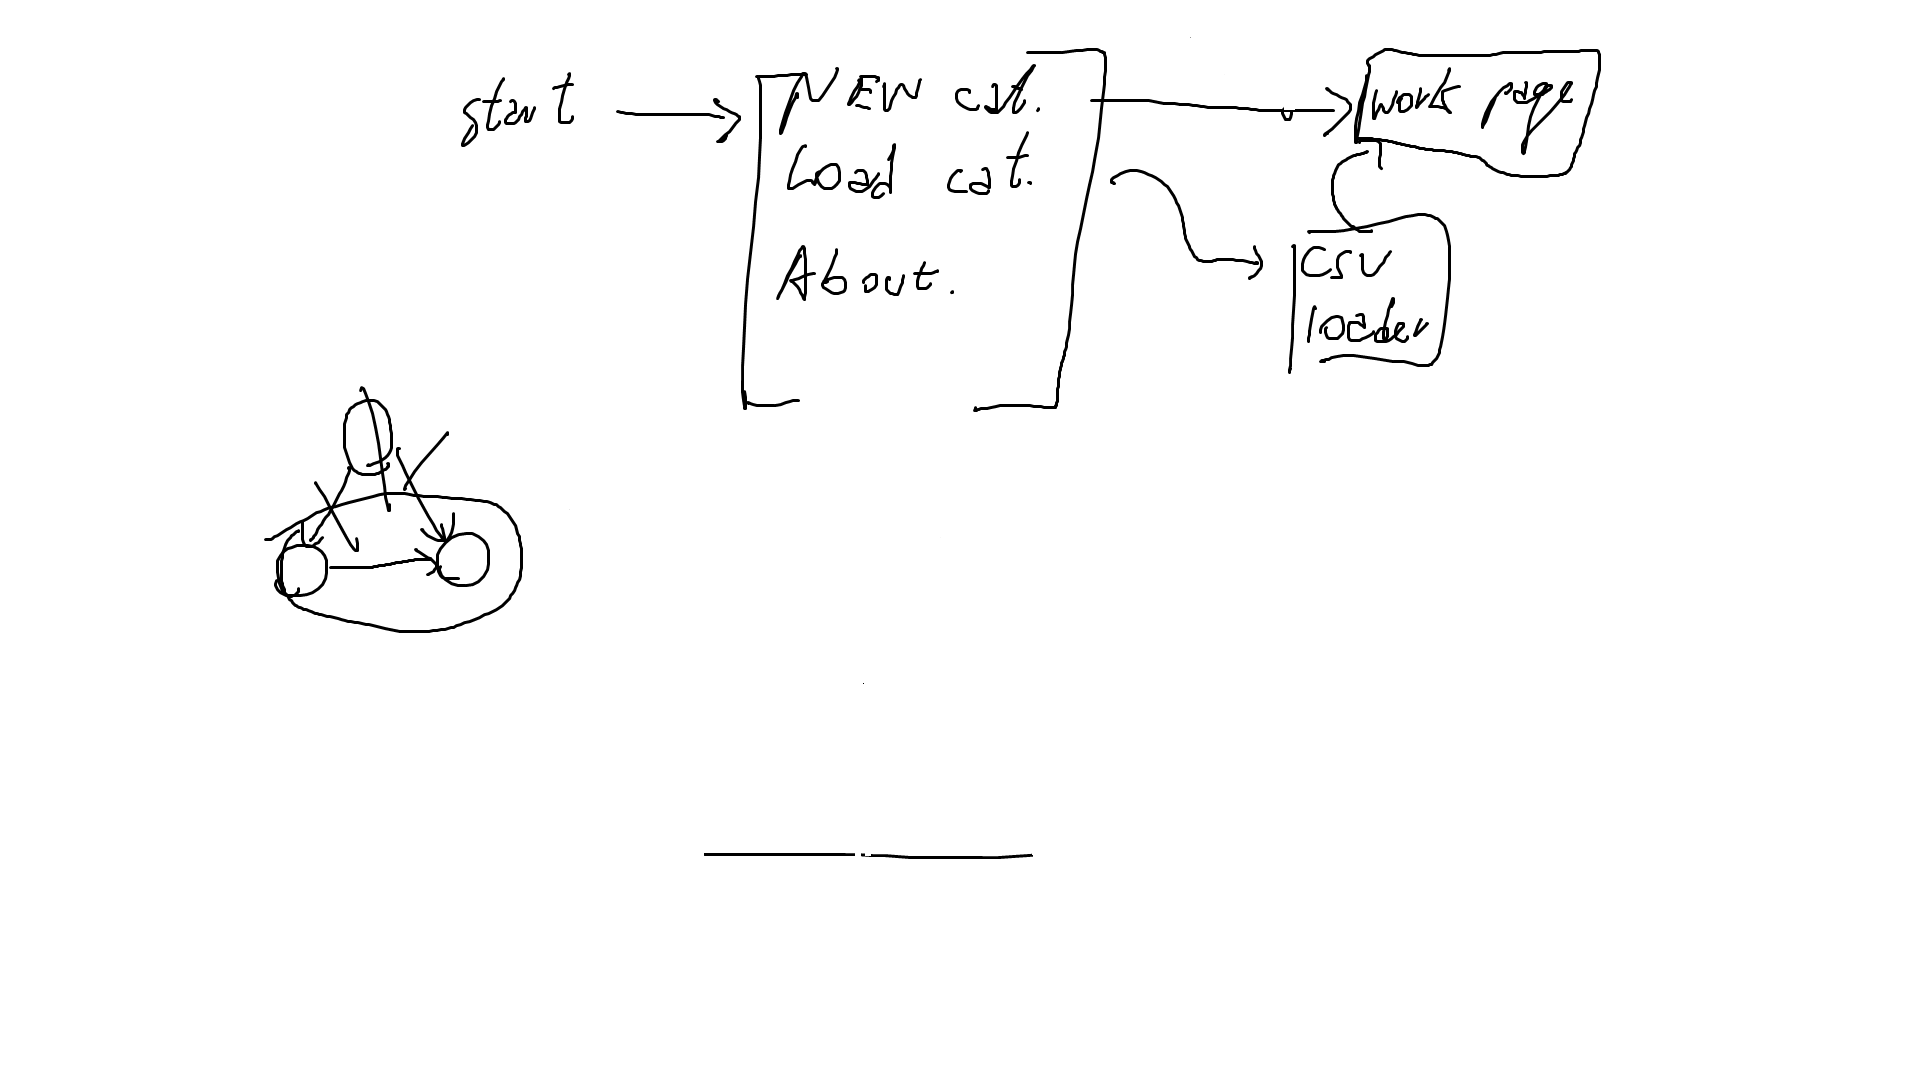 start
NEW cat.
Load cat.
About.
work page
CSV
loader